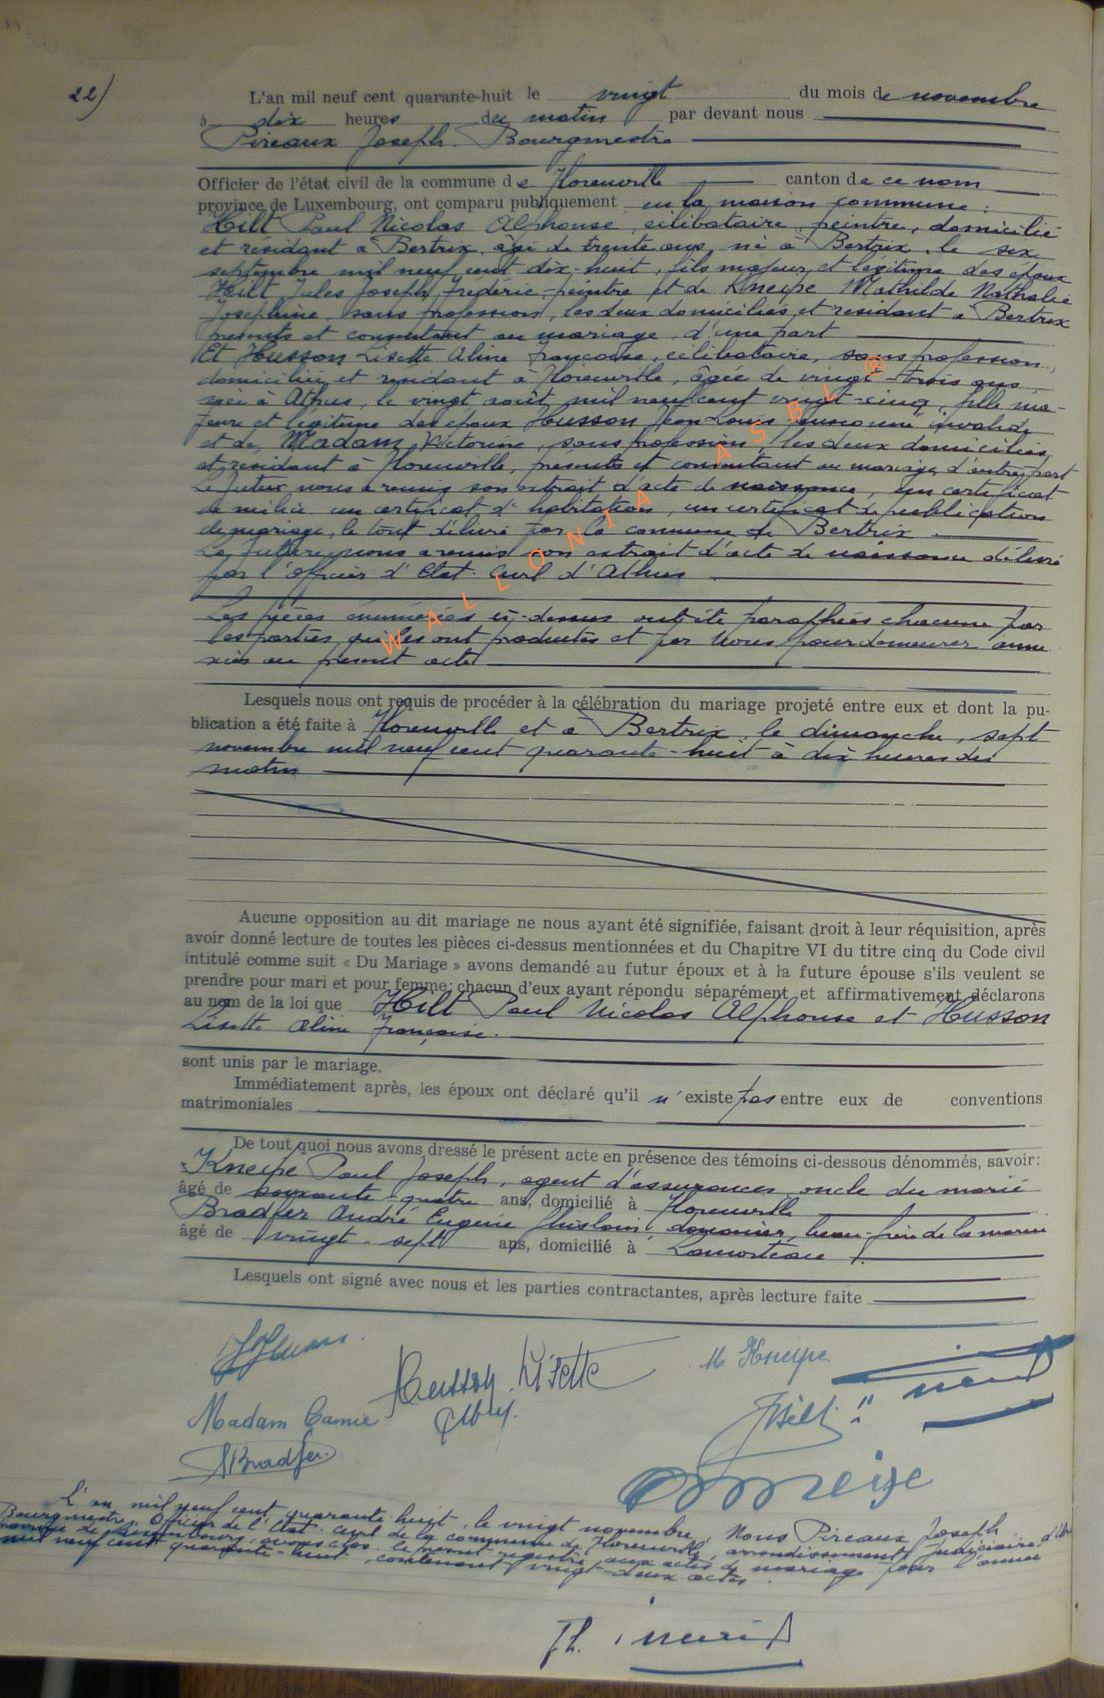 22)
L'an mil neuf cent quarante-huit le vingt du mois de novembre
à dix heures du matin par devant nous
Pireaux Joseph. Bourgmestre
Officier de l'état civil de la commune de Florenville canton de ce nom
province de Luxembourg, ont comparu publiquement en la maison commune :
Hilt Paul Nicolas Alphonse, célibataire, peintre, domicilié
et résidant à Bertrix, âgé de trente ans, né à Bertrix, le six
septembre mil neuf cent dix-huit, fils majeur et légitime des époux
Hilt Jules Joseph Frederic, peintre et de Kneipe Mathilde Nathalie
Josephine, sans profession, les deux domiciliés et résidant à Bertrix
présents et consentant au mariage, d'une part
Et Husson Lisette Aline Françoise, célibataire, sans profession,
domiciliée et résidant à Florenville, âgée de vingt-trois ans,
née à Athus, le vingt août mil neuf cent vingt-cinq, fille ma-
jeure et légitime des époux Husson Jean Louis, pensionné invalide
et de Madam Victorine, sans profession, les deux domiciliés
et résidant à Florenville, présents et consentant au mariage, d'autre part
Le futur nous a remis son extrait d'acte de naissance, un certificat
de milice un certificat d'habitation, un certificat de publication
de mariage, le tout délivré par la commune de Bertrix
La future nous a remis son extrait d'acte de naissance délivré
par l'officier d'Etat-Civil d'Athus
Les pièces énumérées ci-dessus ont été paraphées chacune par
les parties qui les ont produites et par Nous pour demeurer anne
xées au présent acte
Lesquels nous ont requis de procéder à la célébration du mariage projeté entre eux et dont la pu-
blication a été faite à Florenville et à Bertrix, le dimanche, sept
novembre mil neuf cent quarante-huit à dix heures du
matin
Aucune opposition au dit mariage ne nous ayant été signifiée, faisant droit à leur réquisition, après
avoir donné lecture de toutes les pièces ci-dessus mentionnées et du Chapitre VI du titre cinq du Code civil
intitulé comme suit « Du Mariage » avons demandé au futur époux et à la future épouse s'ils veulent se
prendre pour mari et pour femme; chacun d'eux ayant répondu séparément et affirmativement déclarons
au nom de la loi que Hilt Paul Nicolas Alphonse et Husson
Lisette Aline Françoise.
sont unis par le mariage.
Immédiatement après, les époux ont déclaré qu'il n'existe pas entre eux de conventions
matrimoniales
De tout quoi nous avons dressé le présent acte en présence des témoins ci-dessous dénommés, savoir:
Kneipe Paul Joseph, agent d'assurances, oncle du marié
âgé de soixante-quatre ans, domicilié à Florenville
Bradfer André Eugénie Ghislain, douanier, beau-frère de la mariée
âgé de vingt-sept ans, domicilié à Lamorteau
Lesquels ont signé avec nous et les parties contractantes, après lecture faite
Husson Lisette
M Kneipe
Madam
Hilt
ABradfer
Kneipe
L'an mil neuf cent quarante-huit, le vingt novembre, Nous Pireaux Joseph
Bourgmestre, Officier de l'Etat-Civil de la commune de Florenville, arrondissement judiciaire
de Luxembourg avons clos le présent registre aux actes de mariage pour l'année
mil neuf cent quarante-huit, contenant vingt-deux actes.
WALLONIA ASBL ®